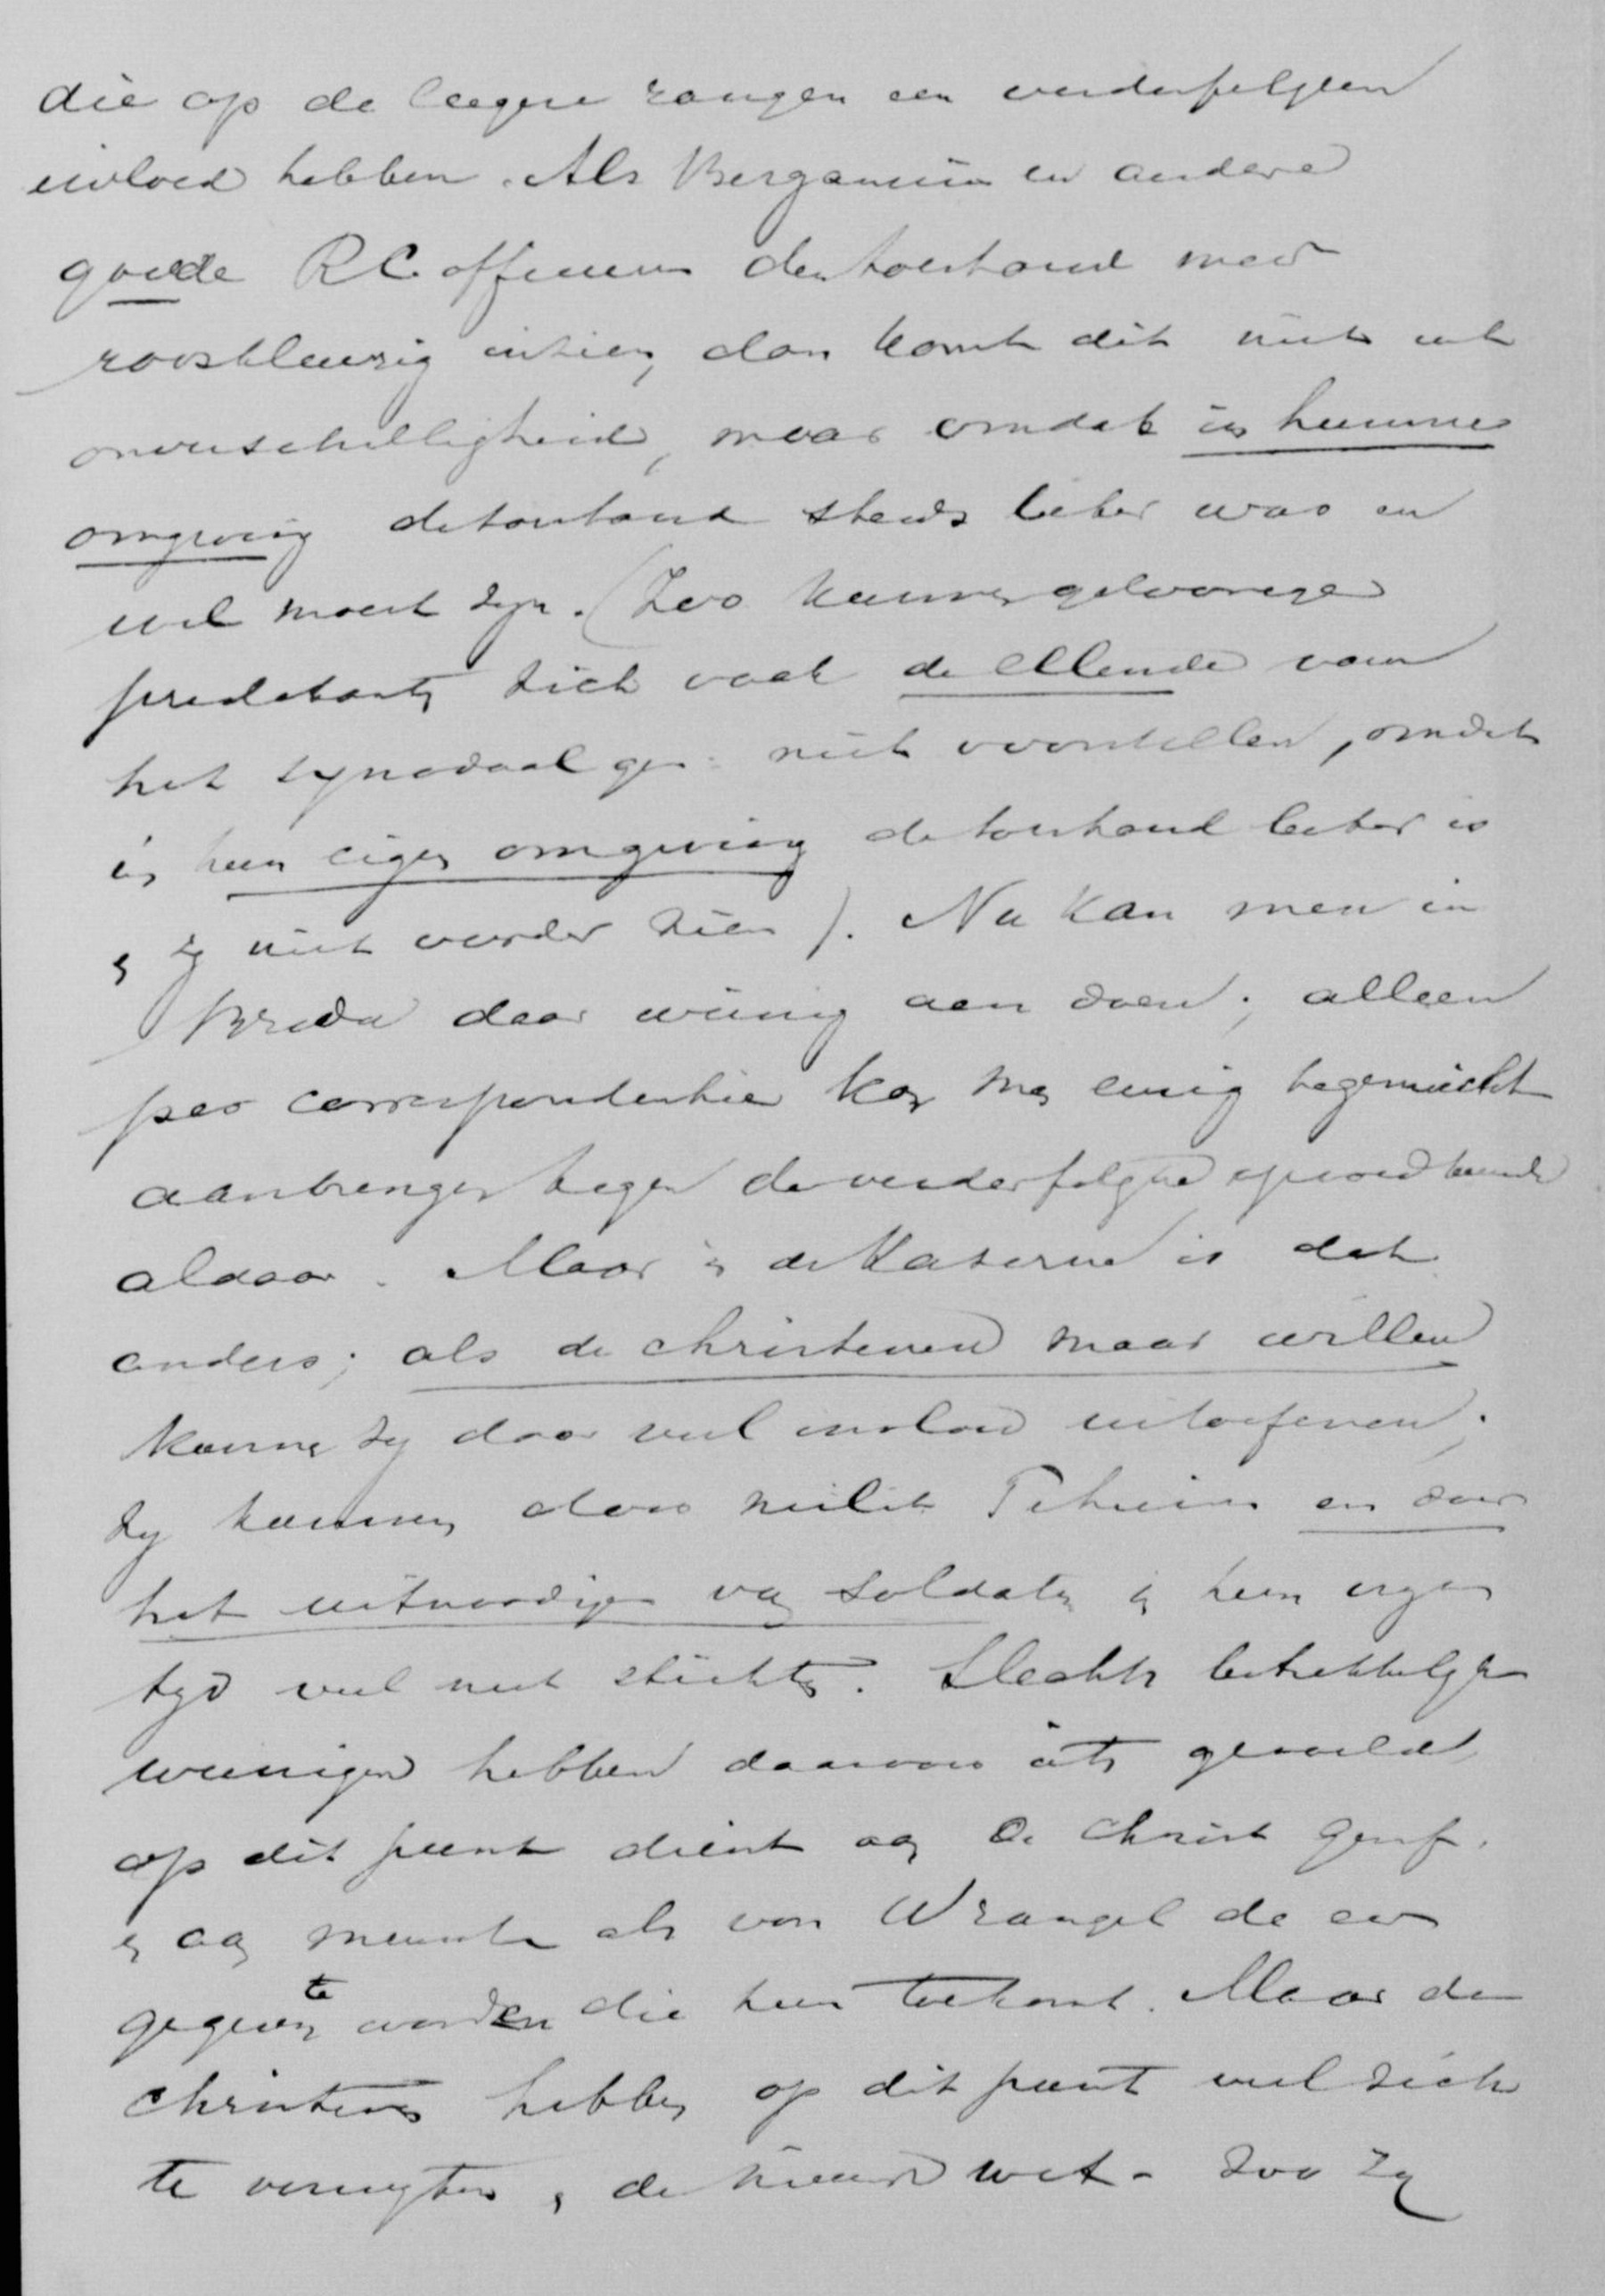 die op de lagere rangen een verderfelyken
invloed hebben. Als Bergansius en andere
goede RC officieren den toestand meer
rooskleurig inzien, dan komt dit niet uit
onverschilligheid, maar omdat in hunne
omgeving de toestand steeds beter was en
wel moest zyn. (Zoo kunnen geloovige
predikanten zich vaak de ellende van
het synodaal gen. niet voorstellen, omdat
in hun eigen omgeving de toestand beter is
en zy niet verder zien). Nu kan men in
Breda daar weinig aan doen; alleen
per correspondentie kan men eenig tegenwicht
aanbrengen tegen de verderfelyke opvoedkunde
aldaar. Maar in de Kaserne is dat
anders; als de christenen maar willen
kunnen zy daar veel invloed uitoefenen;
zy kunnen door milit Tehuizen en door
het uitnoodigen van soldaten in hun eigen
tyd veel nut stichten. Slechts betrekkelyk
weinigen hebben daarvoor iets gevoeld
op dit punt dient aan de Christ Geref.
en aan menschen als von Wrangel de eer
gegeven te worden die hun toekomt. Maar de
Christenen hebben op dit punt veel zich
te verwyten, de nieuwe wet - zoo zy